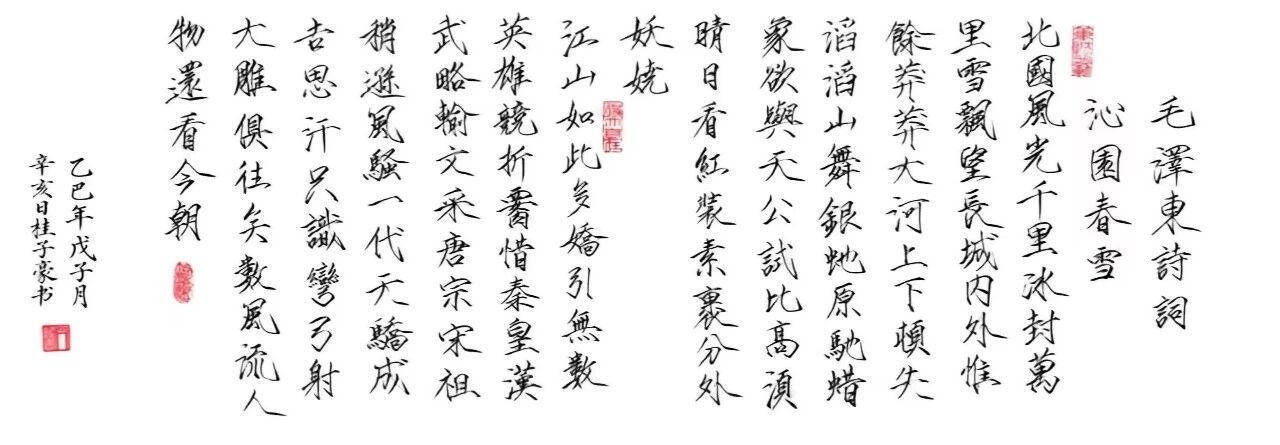 毛澤東詩詞
沁園春雪
北國風光千里冰封萬
里雪飄望長城内外惟
餘莽莽大河上下頓失
滔滔山舞銀虵原馳蜡
象欲與天公試比高湏
晴日看紅裝素裹分外
妖娆
江山如此多嬌引無數
英雄競折腰惜秦皇漢
武略輸文采唐宗宋祖
稍遜風騷一代天驕成
吉思汗只識彎弓射
大雕俱往矣數風流人
物還看今朝
乙巳年戊子月
辛亥日桂子豪书